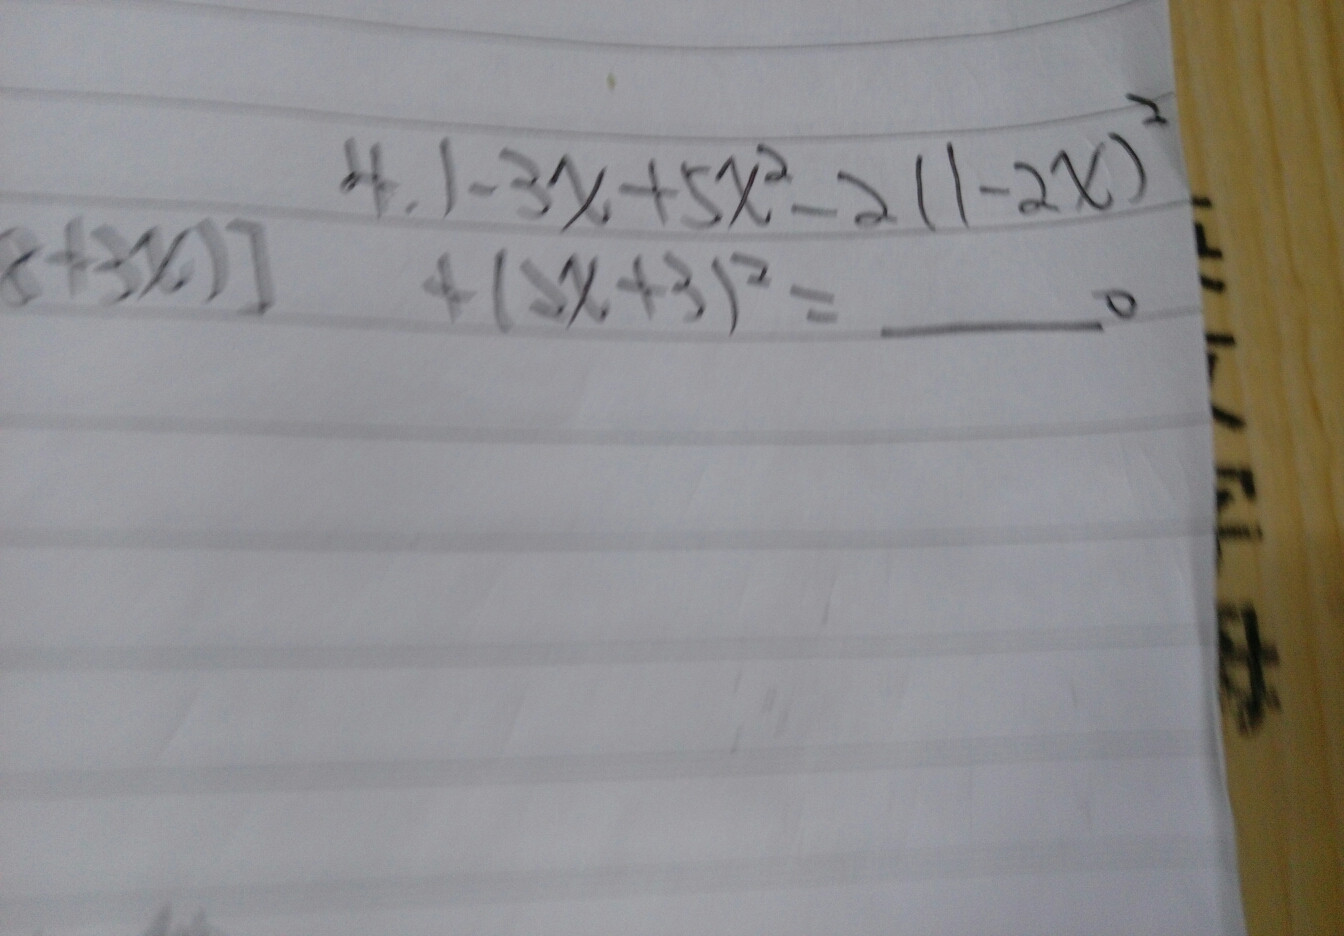 4. 1-3x+5x²-2(1-2x)²
+3x)]
+(3x+3)²=______。